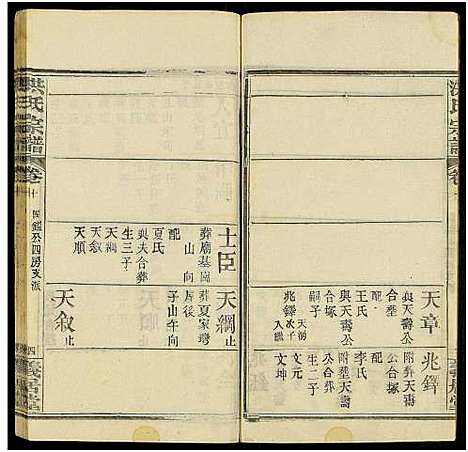 洪氏宗譜
卷
天章
合塋
與天壽公
配
王氏
與天壽公
合塚
嗣子
兆鐸
兆鐸
附葬天壽
公合塚
配
李氏
附塋天壽
公合葬
生二子
文元
文坤
士臣
葬廟基崗
山向
配
夏氏
與夫合葬
生三子
天綱
天敘
天順
天綱止
葬夏家灣
房後
子山午向
天敘止
洪氏宗譜
卷十
四房支派
四
義居堂